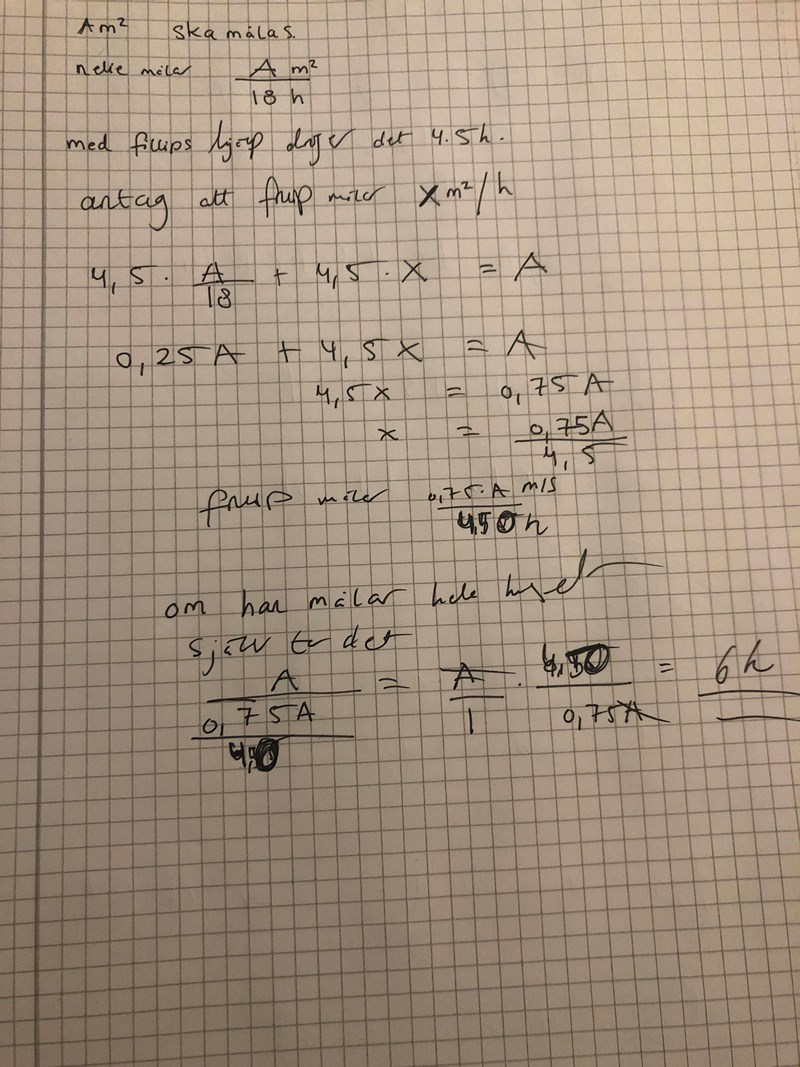 Am² ska målas.
målar A m²
18 h
med filips hjälp det 4.5h.
antag att filip målar x m²/h
4,5 · A/18 + 4,5 · x = A
0,25A + 4,5x = A
4,5x = 0,75A
x = 0,75A/4,5
filip målar 0,75·A m/s
h
om han målar hela huset
själv tar det
A/0,75A = A/1 · /0,75A = 6h